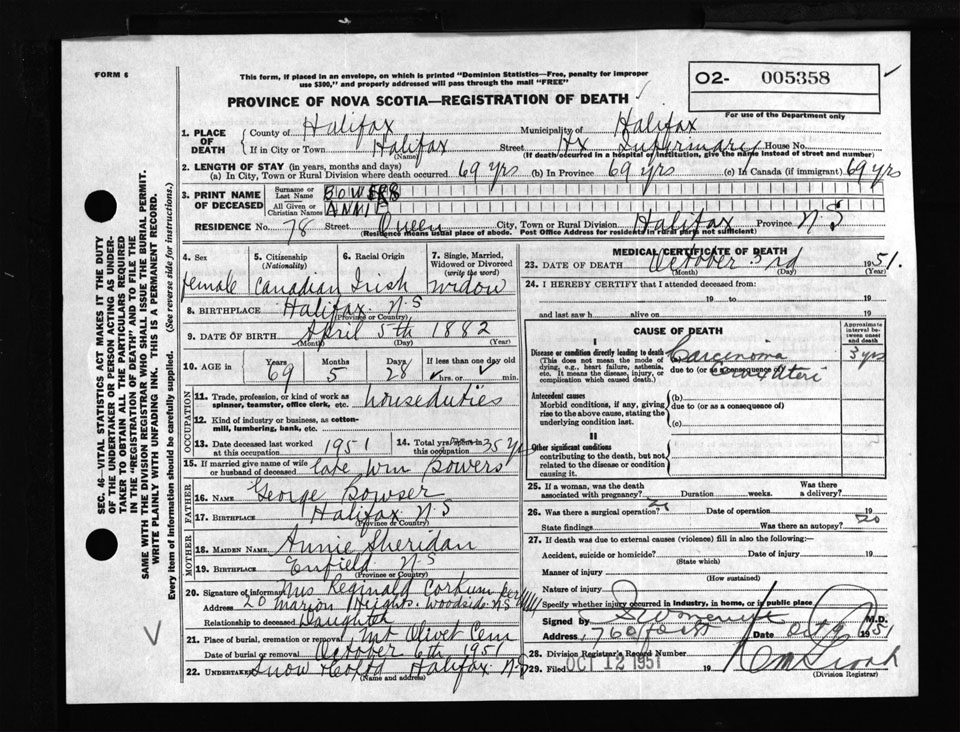 FORM 6
This form, if placed in an envelope, on which is printed "Dominion Statistics—Free, penalty for improper
use $300," and properly addressed will pass through the mail "FREE"
O2- 005358
For use of the Department only
PROVINCE OF NOVA SCOTIA—REGISTRATION OF DEATH
1. PLACE OF DEATH
County of Halifax Municipality of Halifax
If in City or Town Halifax Street Hx Infirmary House No.
(Name) (If death occurred in a hospital or institution, give the name instead of street and number)
2. LENGTH OF STAY (in years, months and days)
(a) In City, Town or Rural Division where death occurred 69 yrs (b) In Province 69 yrs (c) In Canada (if immigrant) 69 yrs
3. PRINT NAME OF DECEASED
Surname or Last Name BOWERS
All Given or Christian Names ANNIE
RESIDENCE No. 78 Street Queen City, Town or Rural Division Halifax Province N-S
(Residence means usual place of abode. Post Office Address for residents in rural parts not sufficient)
4. Sex 5. Citizenship (Nationality) 6. Racial Origin 7. Single, Married, Widowed or Divorced (write the word)
female Canadian Irish widow
8. BIRTHPLACE Halifax N-S
(Province or Country)
9. DATE OF BIRTH April 5th 1882
(Month) (Day) (Year)
10. AGE in Years Months Days If less than one day old
69 5 28 hrs. or min.
OCCUPATION
11. Trade, profession, or kind of work as spinner, teamster, office clerk, etc. housedutiēs
12. Kind of industry or business, as cotton-mill, lumbering, bank, etc.
13. Date deceased last worked at this occupation 1951
14. Total yrs. spent in this occupation 35 yrs
15. If married give name of wife or husband of deceased late Wm Bowers
FATHER
16. NAME George Bowser
17. BIRTHPLACE Halifax N-S
(Province or Country)
MOTHER
18. MAIDEN NAME Annie Sheridan
19. BIRTHPLACE Enfield N-S
(Province or Country)
20. Signature of informant Mrs Reginald Corkum
Address 20 Marion Heights. Woodside N-S
Relationship to deceased Daughter
21. Place of burial, cremation or removal Mt Olivet Cem
Date of burial or removal October 6th 1951
22. Undertaker Snow Halifax N-S
(Name and address)
MEDICAL CERTIFICATE OF DEATH
23. DATE OF DEATH October 3rd 1951.
(Month) (Day) (Year)
24. I HEREBY CERTIFY that I attended deceased from:
19 to 19
and last saw h alive on 19
CAUSE OF DEATH
Approximate interval between onset and death
I
Disease or condition directly leading to death
(This does not mean the mode of dying, e.g., heart failure, asthenia, etc. It means the disease, injury, or complication which caused death.)
(a) Carcinoma
due to (or as consequence of) Uteri
3 yrs
Antecedent causes
Morbid conditions, if any, giving rise to the above cause, stating the underlying condition last.
(b)
due to (or as a consequence of)
(c)
II
Other significant conditions
contributing to the death, but not related to the disease or condition causing it.
25. If a woman, was the death associated with pregnancy? Duration weeks. Was there a delivery?
26. Was there a surgical operation? Date of operation 19
State findings Was there an autopsy? no
27. If death was due to external causes (violence) fill in also the following:—
Accident, suicide or homicide? Date of injury 19
(State which)
Manner of injury
(How sustained)
Nature of injury
Specify whether injury occurred in industry, in home, or in public place
Signed by M.D.
Address Date Oct 1951
28. Division Registrar's Record Number
29. Filed OCT 12 1951 19
(Division Registrar)
SEC. 46—VITAL STATISTICS ACT MAKES IT THE DUTY
OF THE UNDERTAKER OR PERSON ACTING AS UNDER-
TAKER TO OBTAIN ALL THE PARTICULARS REQUIRED
IN THE "REGISTRATION OF DEATH" AND TO FILE THE
SAME WITH THE DIVISION REGISTRAR WHO SHALL ISSUE THE BURIAL PERMIT.
WRITE PLAINLY WITH UNFADING INK. THIS IS A PERMANENT RECORD.
Every item of information should be carefully supplied. (See reverse side for instructions.)